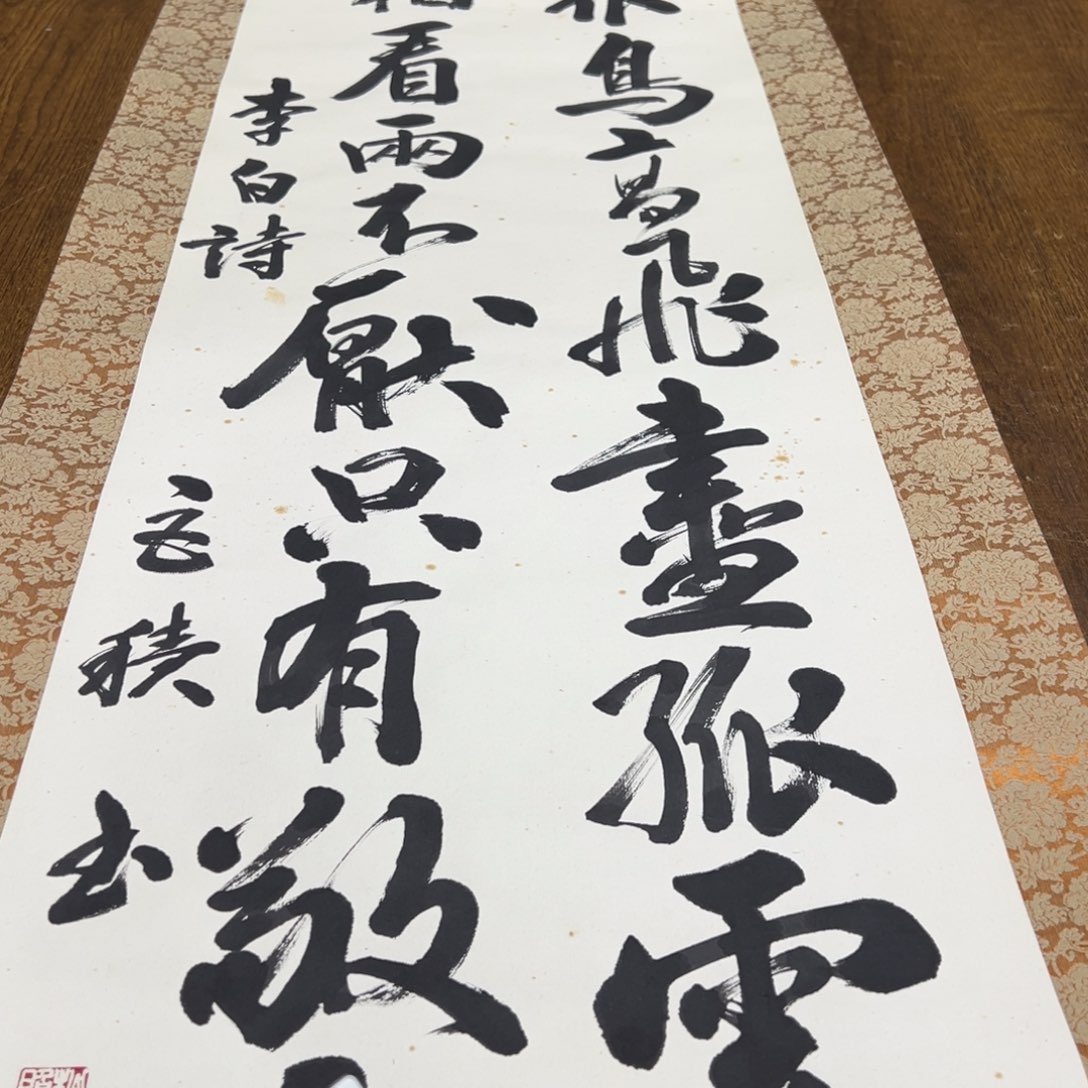 鳥高飛盡孤雲
相看兩不厭只有敬
李白詩 書